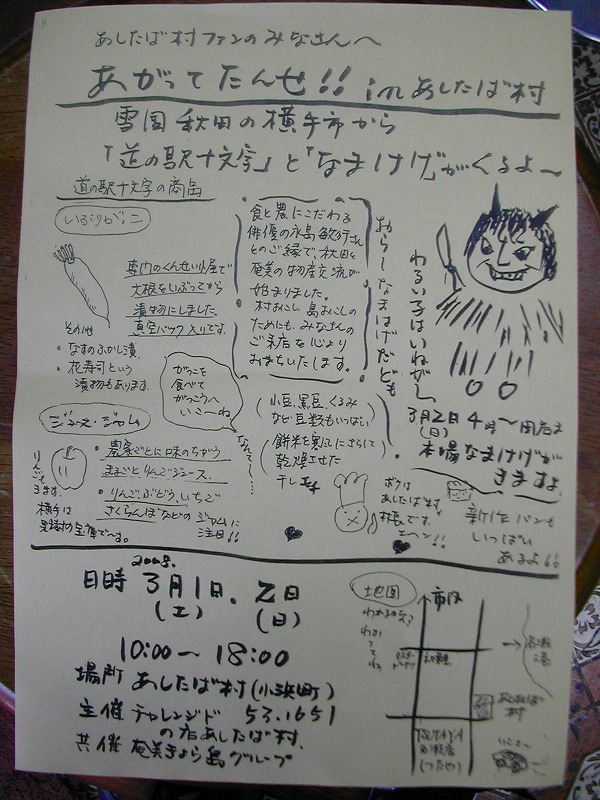 あしたば村ファンのみなさんへ
あがってたんせ!! inあしたば村
雪国 秋田の横手市から
「道の駅十文字」と「なまはげ」がくるよ〜
道の駅十文字の商品
いぶりがっこ
専門のくんせい小屋で
大根をいぶってから
漬物にしました。
真空パック入りです。
その他
・なすのふかし漬
・花寿司という
漬物もあります。
食と農にこだわる
俳優の永島敏行さん
とのご縁で、秋田と
奄美の物産交流が
始まりました。
村おこし、島おこしの
ためにも、みなさんの
ご来店を心より
おまちいたします。
おら〜なまはげだども
わるい子はいねがー
3月2日4時〜閉店まで
(日)
本場なまはげが
きますよ
がっこを
食べて
がっこうへ
いこ〜ね
なんて…
小豆、黒豆、くるみ
など豆類もいっぱい
餅米を寒にさらして
乾燥させた
干し餅
ジュース・ジャム
・農家ごとに味のちがう
まるごとりんごジュース。
・りんご、ぶどう、いちご
さくらんぼなどのジャムに
注目!!
りんごも
きます。
横手は
果樹の宝庫でーす。
ボクは
あしたば村
村長です。
エヘン!!
新作パンも
いっぱい
あるよ!!
2008.
日時 3月1日、2日
(土) (日)
10:00〜18:00
場所 あしたば村(小浜町)
主催 チャレンジド 53.1651
の店あしたば村
共催 奄美きょら島グループ
地図
わかるかな?
わかってね。
↑市内
→名瀬港
あしたば村
TSUTAYA
(つたや)